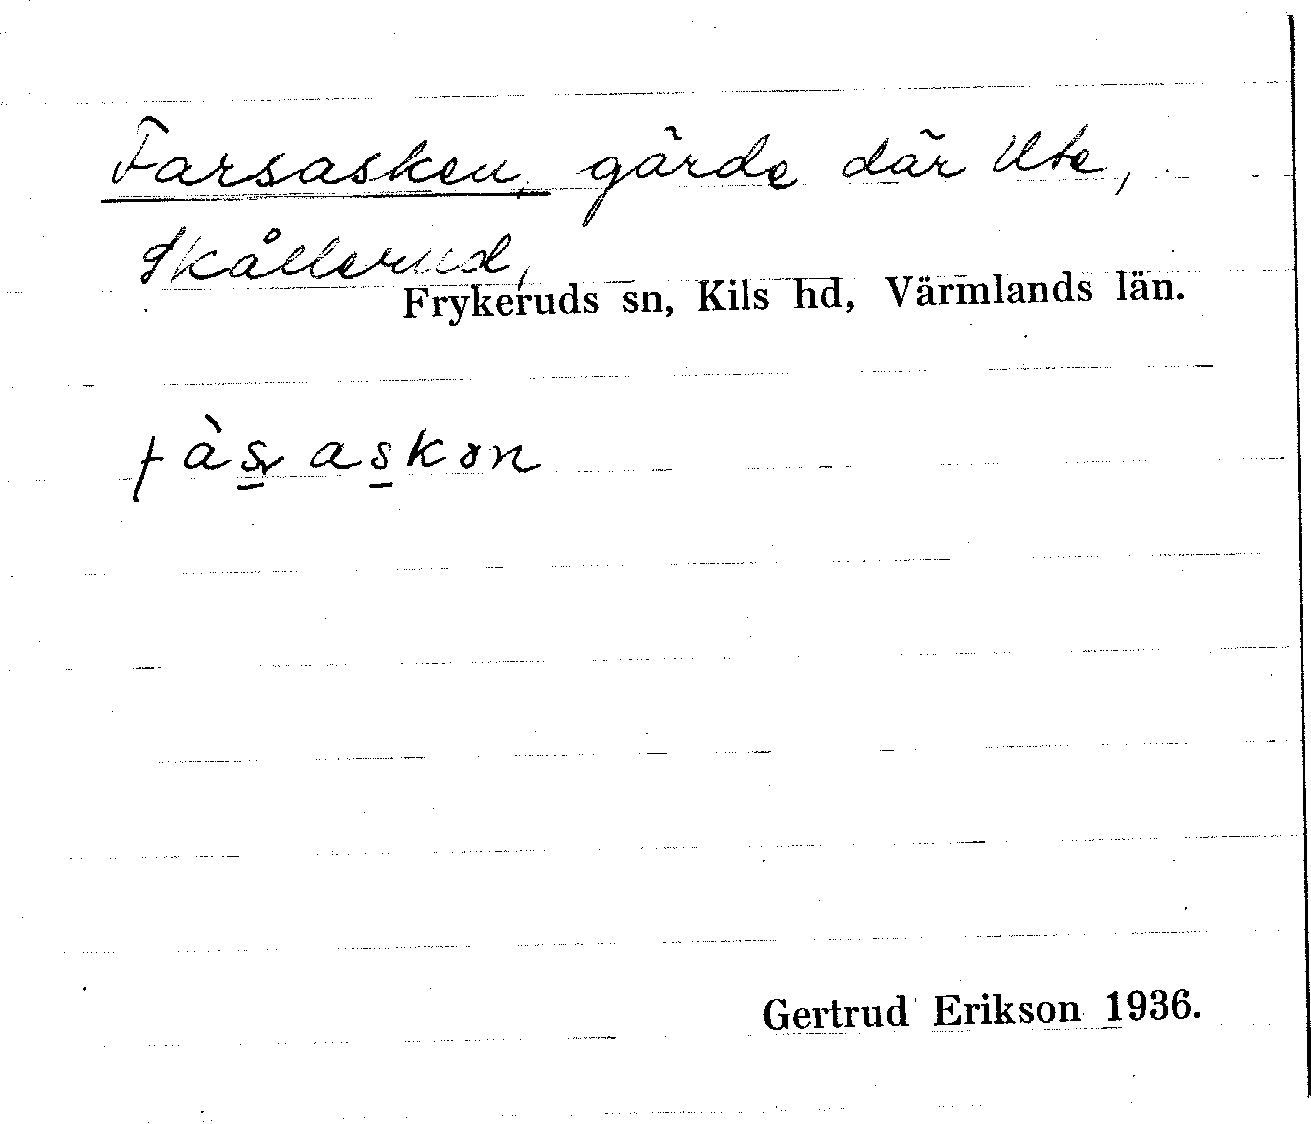 Farsasken, gärde där Ute,
Skållerud,
Frykeruds sn, Kils hd, Värmlands län.
Gertrud Erikson 1936.